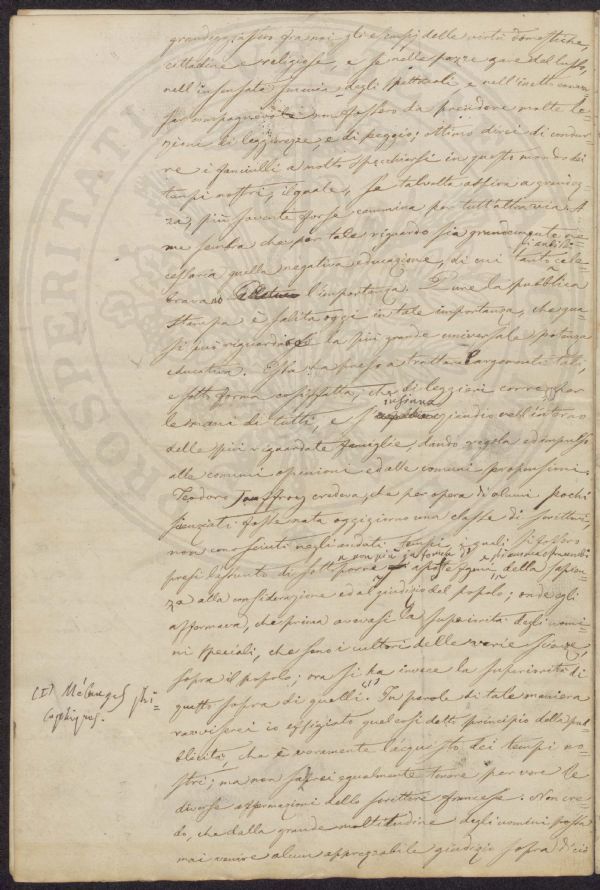 grandeggiassero fra noi gli esempj delle virtù domestiche,
cittadine e religiose, e se nelle pazze gare del lusso,
nell'insensata smania degli spettacoli e nell'inetto conver=
sar compagnevole non fossero da prendere molte le=
zione di leggerezze, e di peggio; ottimo direi di condur=
re i fanciulli a molto specchiarsi in questo mondo dei
tempi nostri, il quale, se talvolta aspira a grandez=
za, più sovente forse cammina per tutt'altra via. A
me sembra che per tale riguardo sia grandemente ne=
cessaria quella negativa educazione, di cui tanto cele=
gli antichi
bravano l'importanza. Pure la pubblica
stampa è salita oggi in tale importanza, che qua=
si può riguardarsi la più grande universale potenza
educativa. Essa ha preso a trattare argomenti tali,
e sotto forma cosiffatta, che di leggieri corre per
le mani di tutti, e s'insinua eziandio nell'interno
delle più riguardate famiglie, dando regola ed impulso
alle comuni opinioni ed alle comuni propensioni.
Teodoro Jouffroy credeva, che per opera di alcuni pochi
scienziati fosse nata oggigiorno una classe di scrittori,
non conosciuti negli andati tempi, i quali si fossero
presi l'assunto di sottoporre
non più la forma di
della sapien=
za alla considerazione ed al giudizio del popolo; onde egli
affermava, che prima avevasi la superiorità degli uomi=
ni speciali, che sono i cultori delle varie scienze,
sopra il popolo; ora si ha invece la superiorità di
questo sopra di quelli (1). In parole di tale maniera
ravviserei io effigiato quel così detto principio della pub=
blicità, che è veramente l'acquisto dei tempi no=
stri; ma non saprei egualmente tenere per vere le
diverse affermazioni dello scrittore francese. Non cre=
do, che dalla grande moltitudine degli uomini possa
mai venire alcun apprezzabile giudizio sopra di ciò
(1) Mélanges phi=
losophiques.